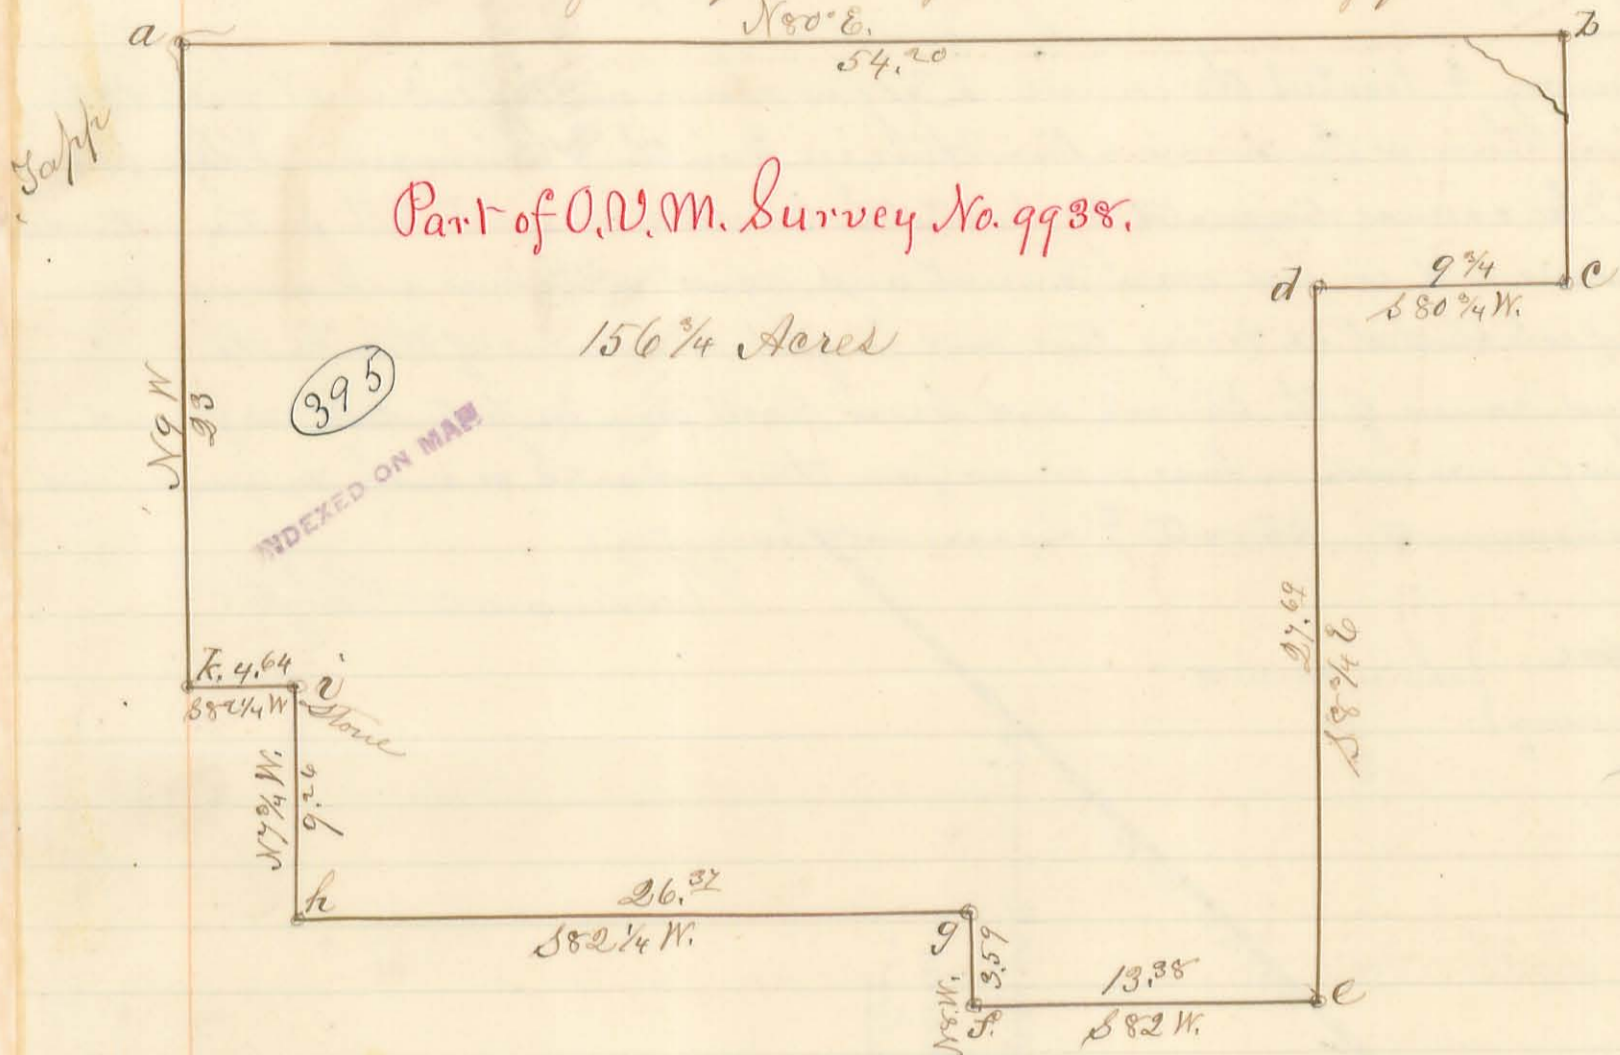 N80°E.
a
b
54.20
Tapp
Part of O.V.M. Survey No. 9938.
d
9 3/4
c
S 80 3/4 W.
156 3/4 Acres
395
N9W
23
INDEXED ON MAP
27.69
S 8 3/4 E
k. 4.64
i
S82 1/4 W
Stone
N7 3/4 W.
9.26
h
26.37
S82 1/4 W.
g
3.59
N8W.
f.
13.38
e
S 82 W.